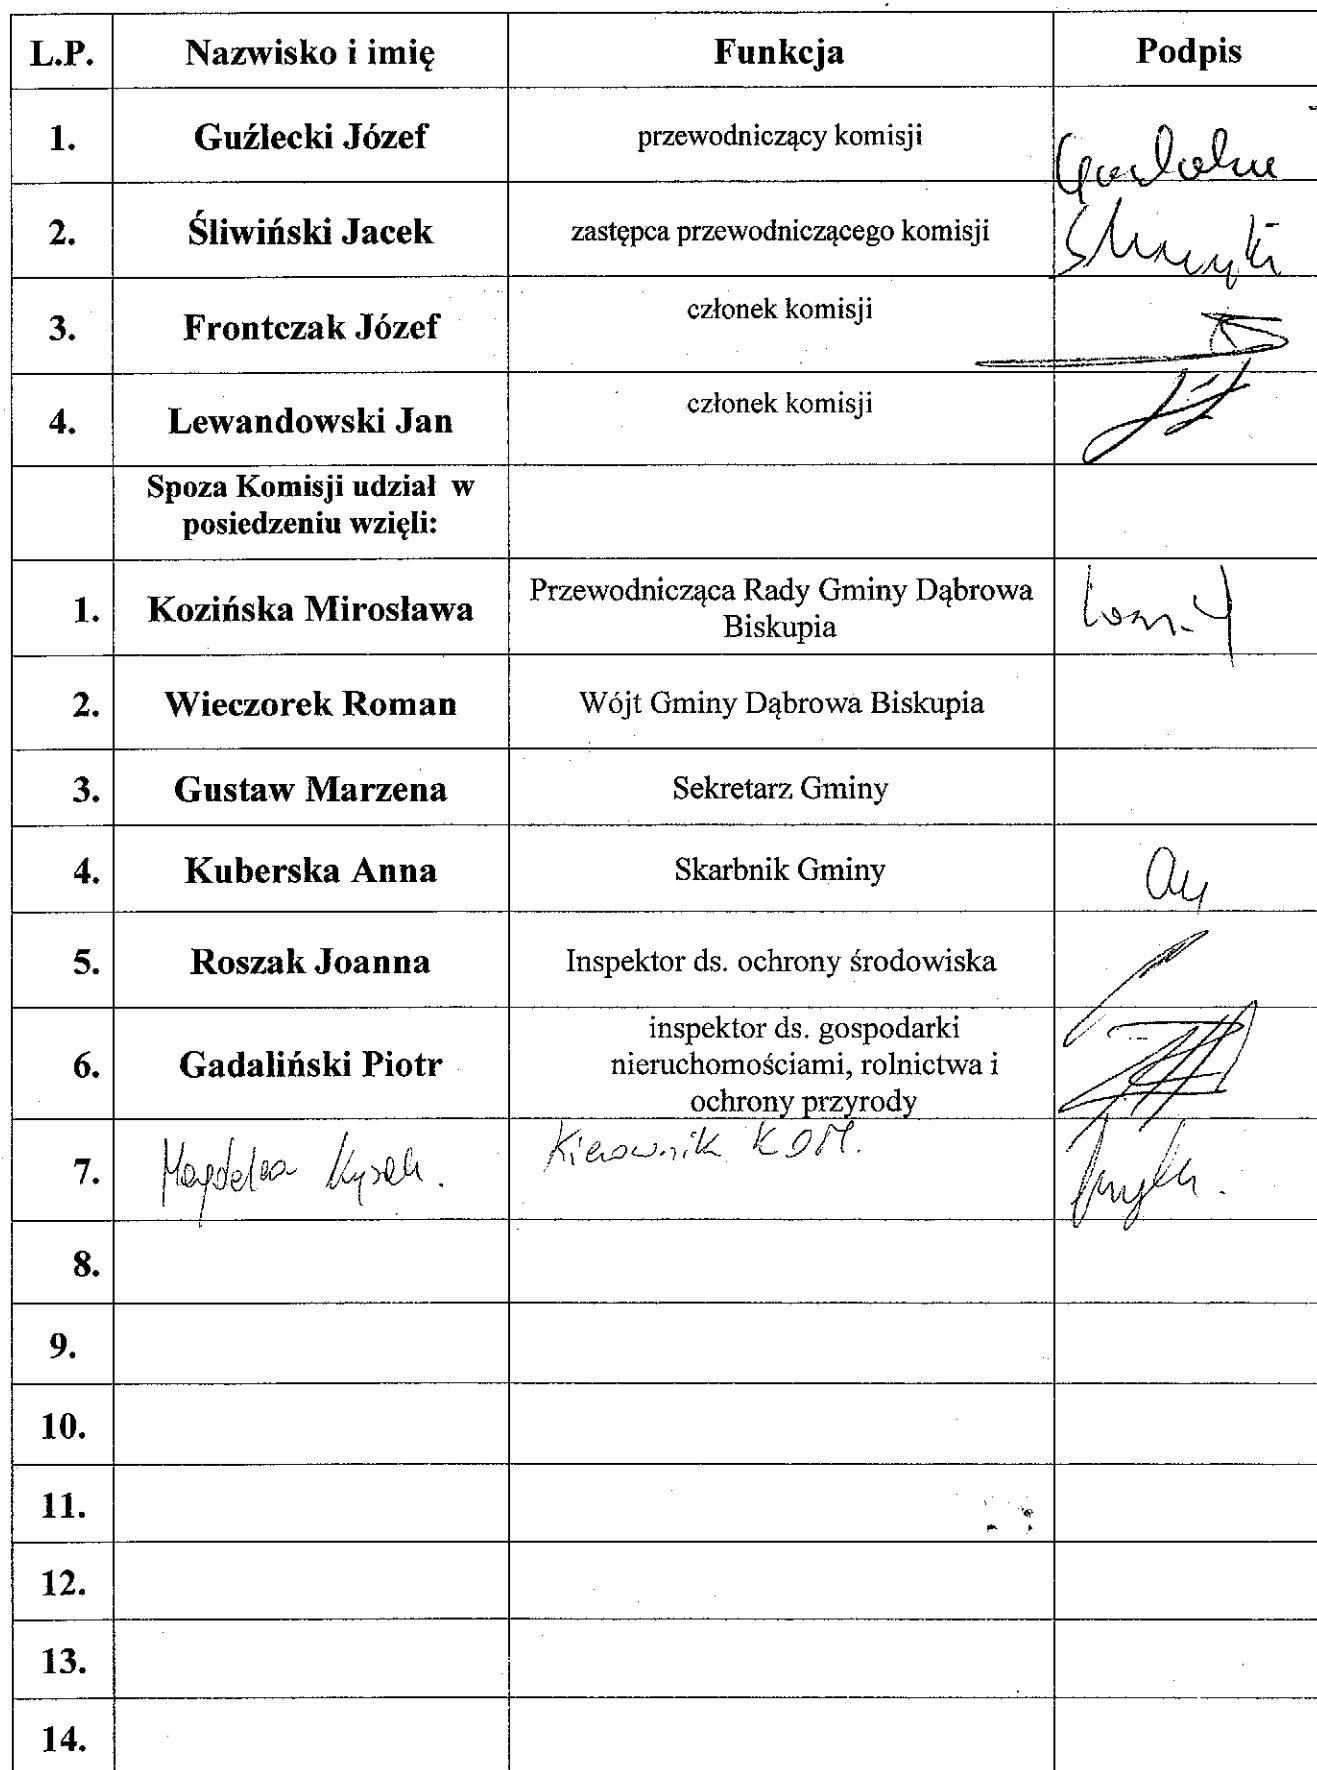 L.P. Nazwisko i imię Funkcja Podpis
1. Guźlecki Józef przewodniczący komisji
2. Śliwiński Jacek zastępca przewodniczącego komisji
3. Frontczak Józef członek komisji
4. Lewandowski Jan członek komisji
Spoza Komisji udział w
posiedzeniu wzięli:
1. Kozińska Mirosława Przewodnicząca Rady Gminy Dąbrowa
Biskupia
2. Wieczorek Roman Wójt Gminy Dąbrowa Biskupia
3. Gustaw Marzena Sekretarz Gminy
4. Kuberska Anna Skarbnik Gminy
5. Roszak Joanna Inspektor ds. ochrony środowiska
6. Gadaliński Piotr inspektor ds. gospodarki
nieruchomościami, rolnictwa i
ochrony przyrody
7. Magdalena Kierownik
8.
9.
10.
11.
12.
13.
14.